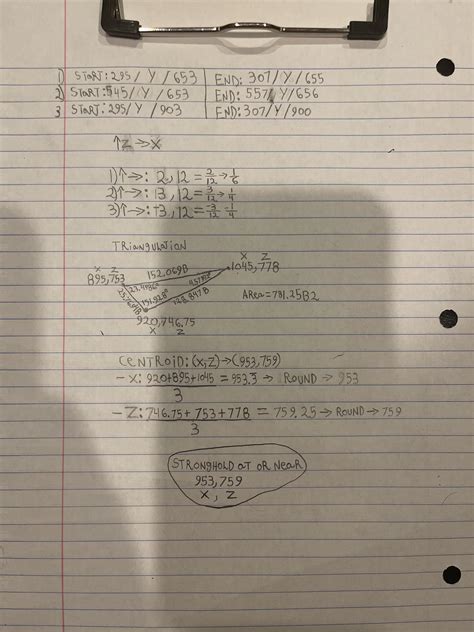 1) START: 295/Y/653 | END: 307/Y/655
2) START: 545/Y/653 | END: 557/Y/656
3 START: 295/Y/903 | END: 307/Y/900
↑Z⇒X
1)↑→: 2, 12 = 2/12 → 1/6
2)↑→: 3, 12 = 3/12 → 1/4
3)↑→: -3, 12 = -3/12 -1/4
TRIANGULATION
X Z
X Z
152.069B
1045,778
895,753
23.4986°
4.573°
25.769B
151.928°
128.847B
AREA = 781.25B2
920,746.75
X Z
CENTROID: (X,Z)→(953,759)
-X: 920+895+1045 = 953.3 → ROUND → 953
3
-Z: 746.75 + 753 + 778 = 759.25 → ROUND → 759
3
STRONGHOLD AT OR NEAR
953,759
X, Z